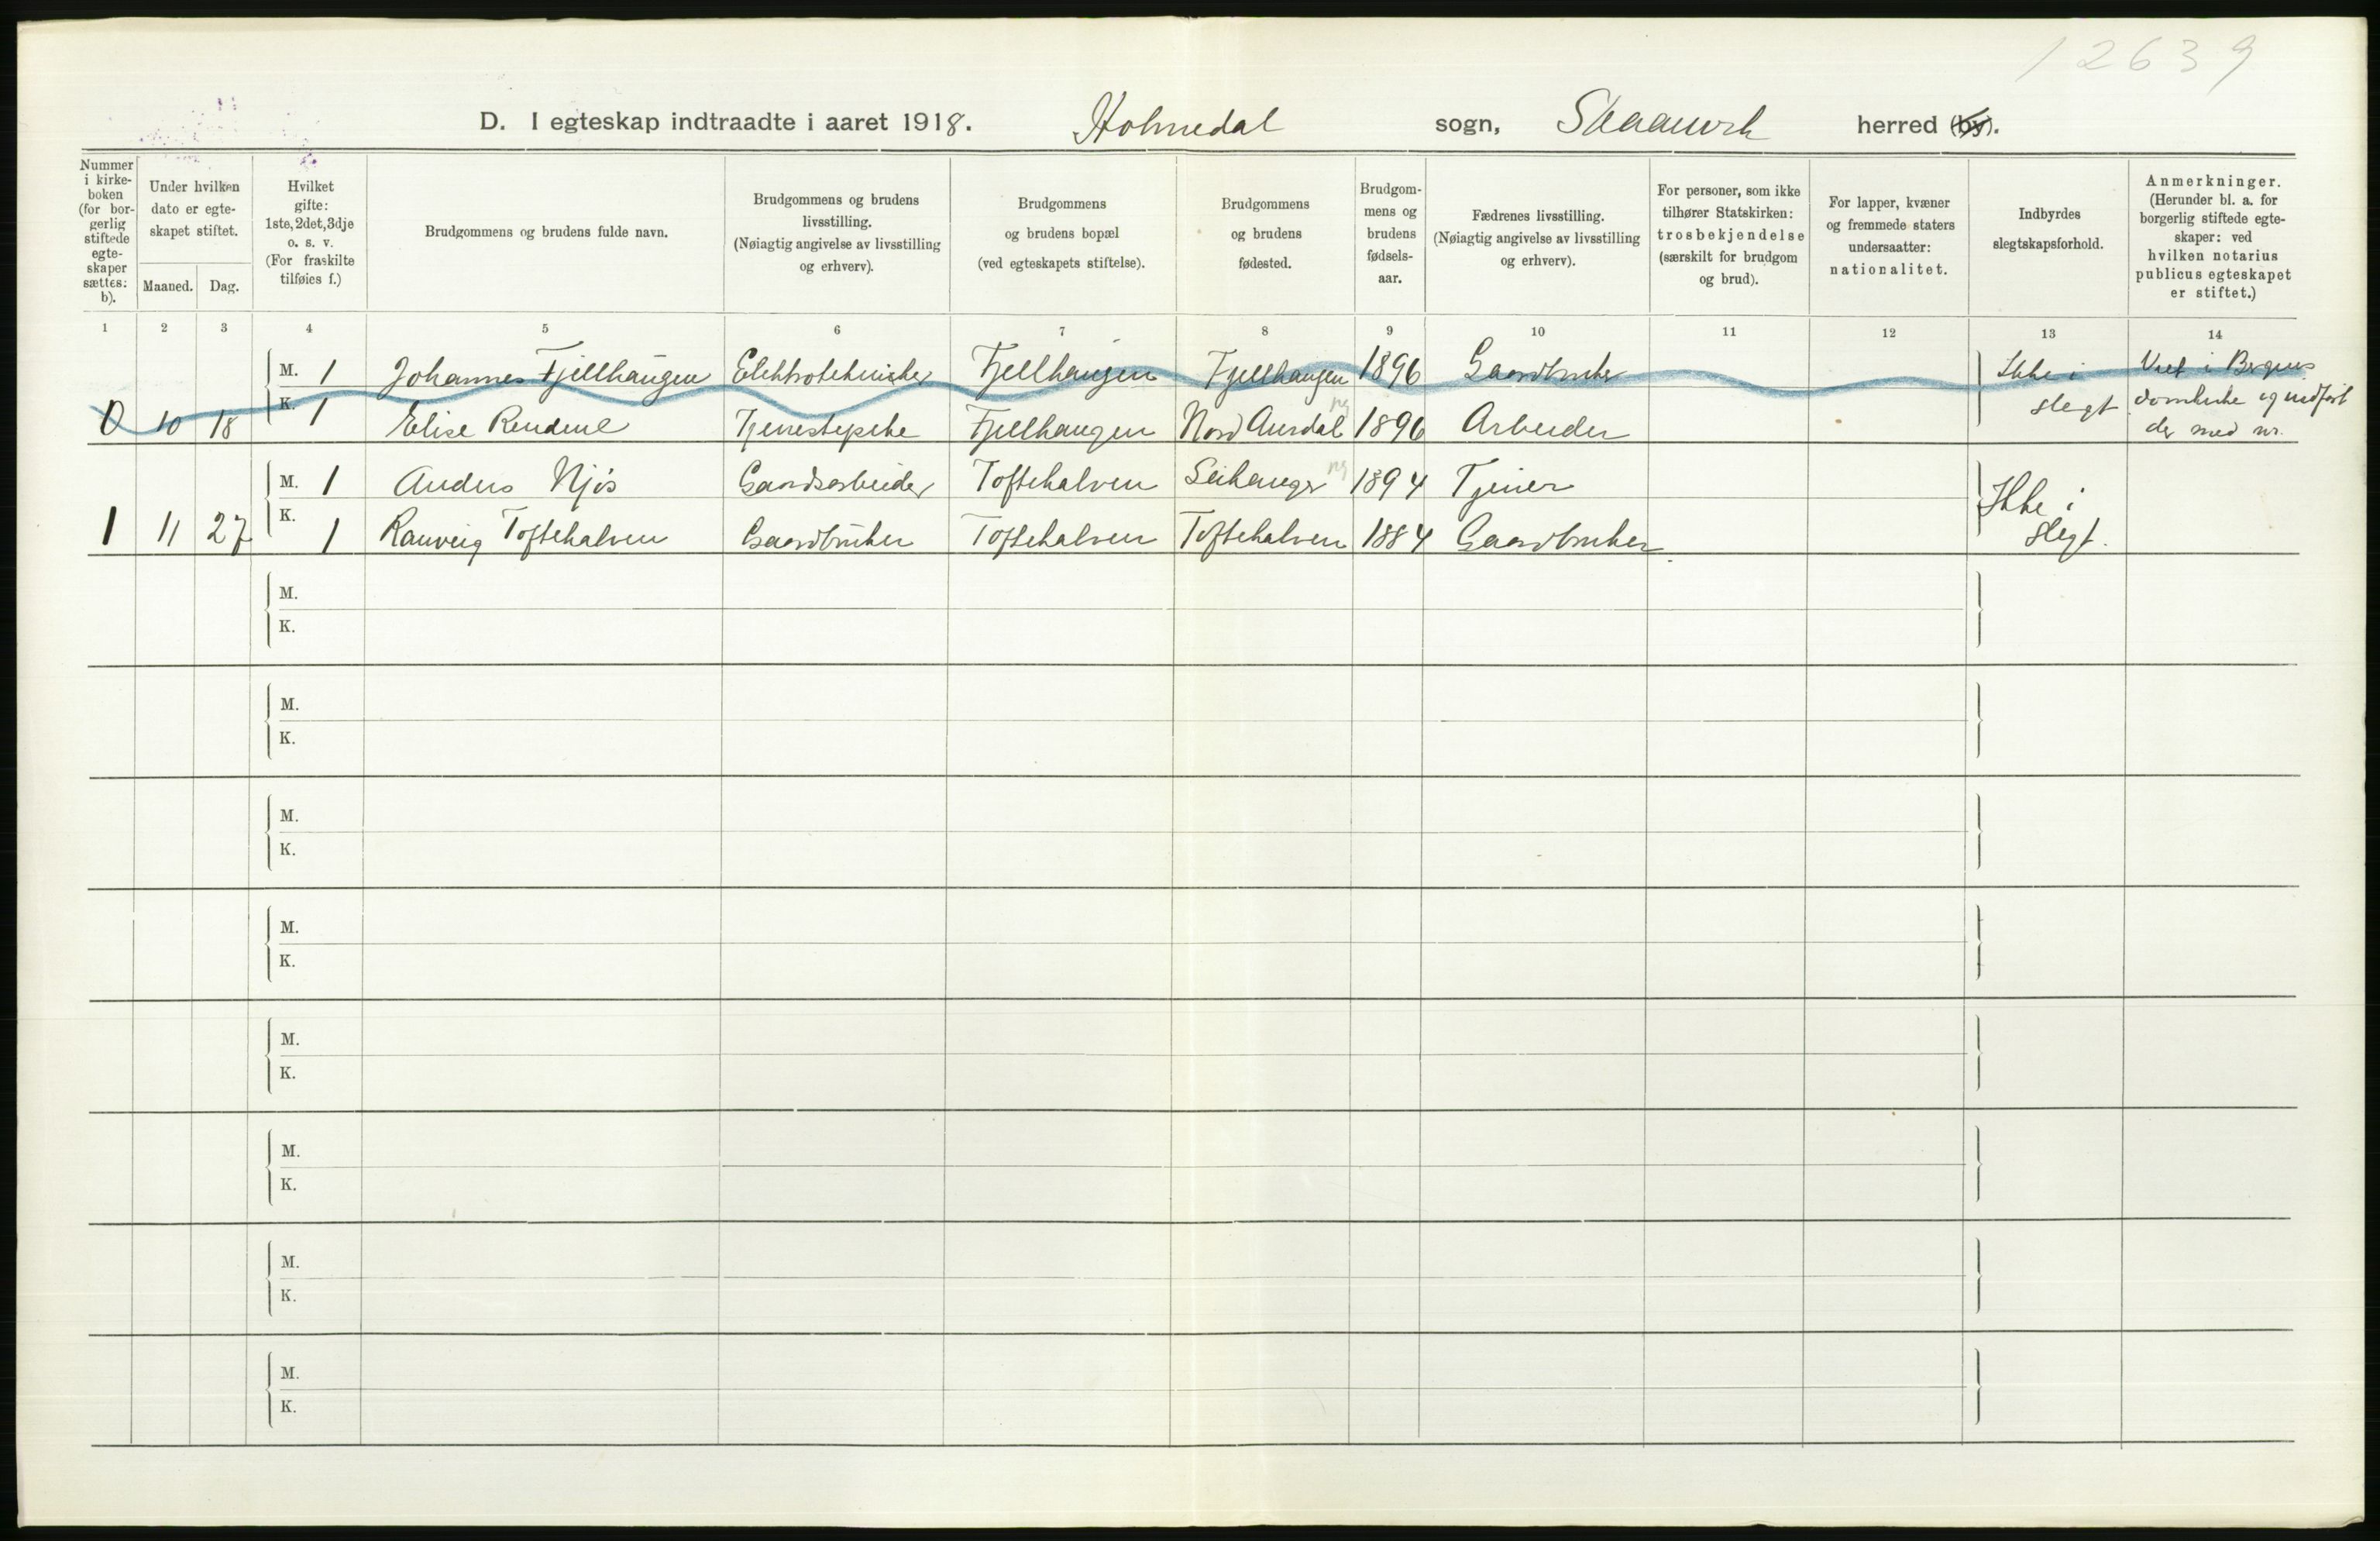 12639
D. I egteskap indtraadte i aaret 1918. Holmedal sogn, Skaanevik herred (by).
Nummer i kirkeboken (for borgerlig stiftede egteskaper sættes: b).
Under hvilken dato er egteskapet stiftet.
Maaned. Dag.
Hvilket gifte: 1ste, 2det, 3dje o. s. v. (For fraskilte tilføies f.)
Brudgommens og brudens fulde navn.
Brudgommens og brudens livsstilling. (Nøiagtig angivelse av livsstilling og erhverv).
Brudgommens og brudens bopæl (ved egteskapets stiftelse).
Brudgommens og brudens fødested.
Brudgommens og brudens fødselsaar.
Fædrenes livsstilling. (Nøiagtig angivelse av livsstilling og erhverv).
For personer, som ikke tilhører Statskirken: trosbekjendelse (særskilt for brudgom og brud).
For lapper, kvæner og fremmede staters undersaatter: nationalitet.
Indbyrdes slegtskapsforhold.
Anmerkninger. (Herunder bl. a. for borgerlig stiftede egteskaper: ved hvilken notarius publicus egteskapet er stiftet.)
1 2 3 4 5 6 7 8 9 10 11 12 13 14
M. 1 Johannes Fjellhaugen Elektrotekniker Fjellhaugen Fjellhaugen 1896 Gaardbruker Ikke i Viet i Bergens
0 10 18 K. 1 Elise Rendene Tjenestepike Fjellhaugen Nord Aurdal 1896 Arbeider slegt domkirke og indført
der med nr.
M. 1 Anders Njøs Gaardsarbeider Toftehalven Leikanger 1894 Tjener Ikke i
1 11 27 K. 1 Ranveig Toftehalven Gaardbruker Toftehalven Toftehalven 1884 Gaardbruker slegt.
M.
K.
M.
K.
M.
K.
M.
K.
M.
K.
M.
K.
M.
K.
M.
K.